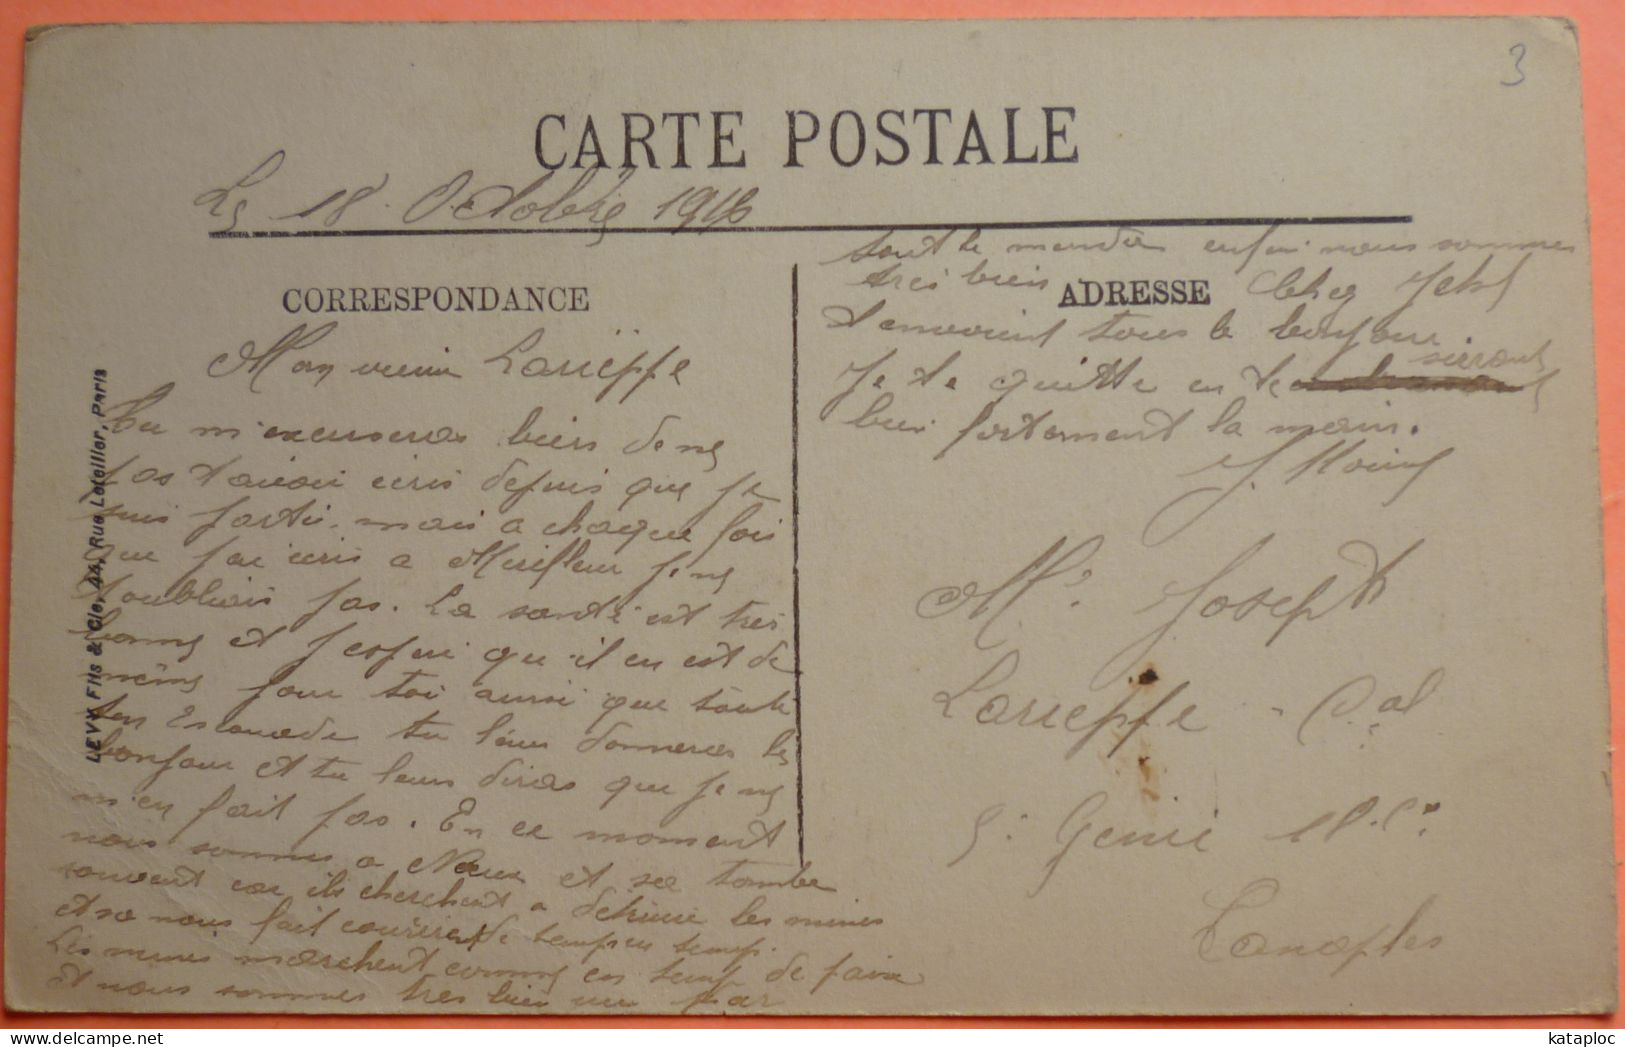 3
CARTE POSTALE
Le 18 Octobre 1916
CORRESPONDANCE
ADRESSE
LEVY Fils & Cie, 44, Rue Letellier, Paris
Mon vieux Larieppe
Tu m'excuseras bien de ne
pas t'avoir ecris depuis que je
suis partie. mais a chaque fois
que j'ai ecris a Meilleur je ne
t'oubliais pas. La santé est très
bonne et j'espere qu'il en est de
même pour toi ainsi que toute
ton Escouade tu leur donneras le
bonjour et tu leurs diras que je ne
m'en fait pas. En ce moment
nous sommes a Nœux et sa tombe
souvent car ils cherchent a detruire les mines
et sa nous fait courrir de temps en temps.
Les mines marchent comme en temp de paix
et nous sommes tres bien vu par
tout le monde enfin nous sommes
tres bien Chez
t'envoient tous le bonjour
Je te quitte en te serrant
bien fortement la main.
Mr. Joseph
Larieppe Cal
5e Genie 11e Cie
Canaples
kataploc